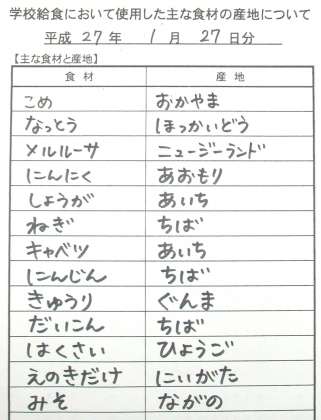 学校給食において使用した主な食材の産地について
平成 27 年 1 月 27 日分
【主な食材と産地】
食材 産地
こめ おかやま
なっとう ほっかいどう
メルルーサ ニュージーランド
にんにく あおもり
しょうが あいち
ねぎ ちば
キャベツ あいち
にんじん ちば
きゅうり ぐんま
だいこん ちば
はくさい ひょうご
えのきだけ にいがた
みそ ながの